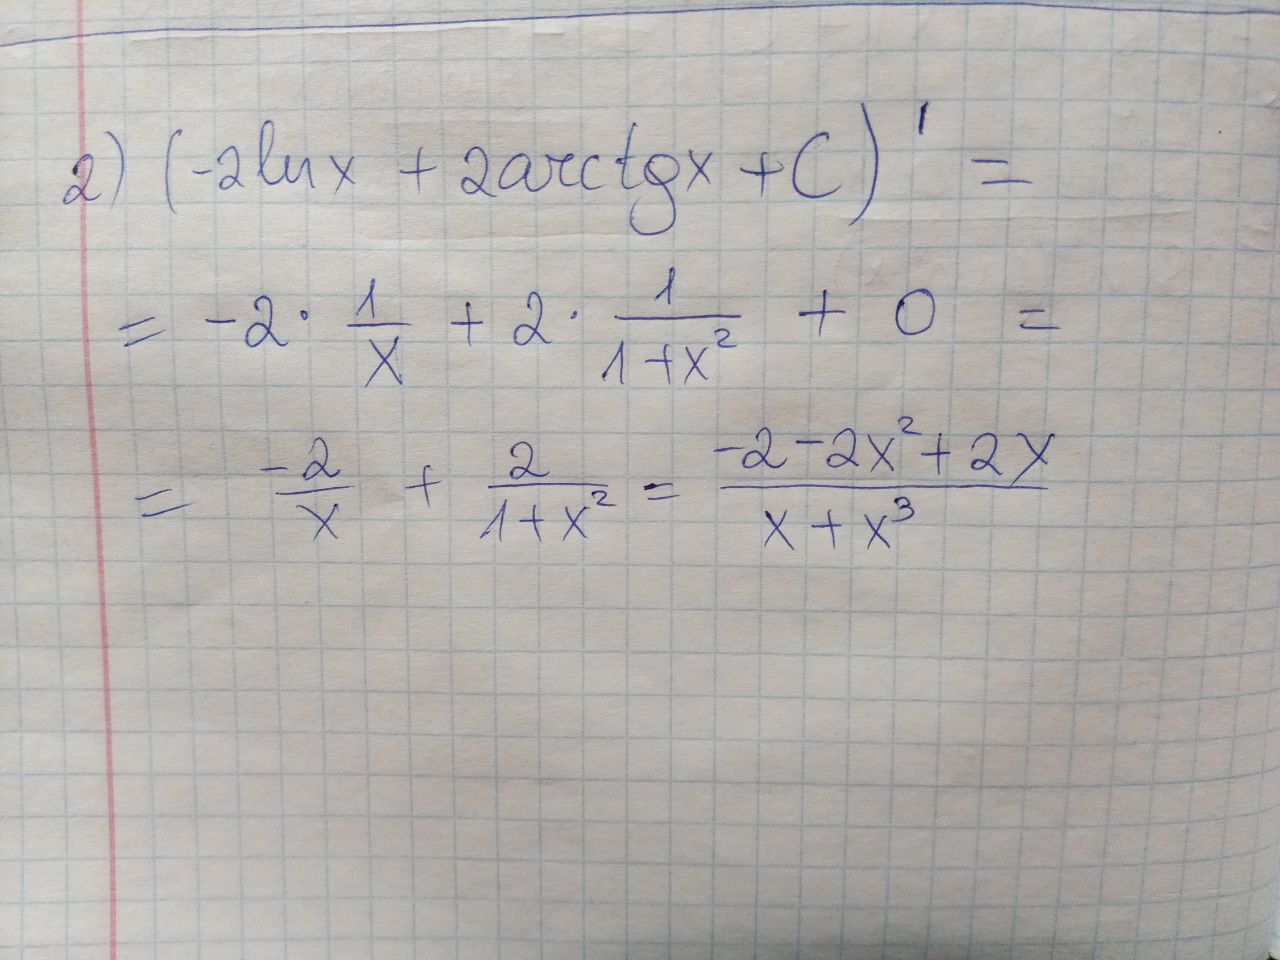 2) (-2lnx + 2arctgx + C)' =
= -2 · 1/x + 2 · 1/(1+x²) + 0 =
= -2/x + 2/(1+x²) = (-2-2x²+2x)/(x+x³)